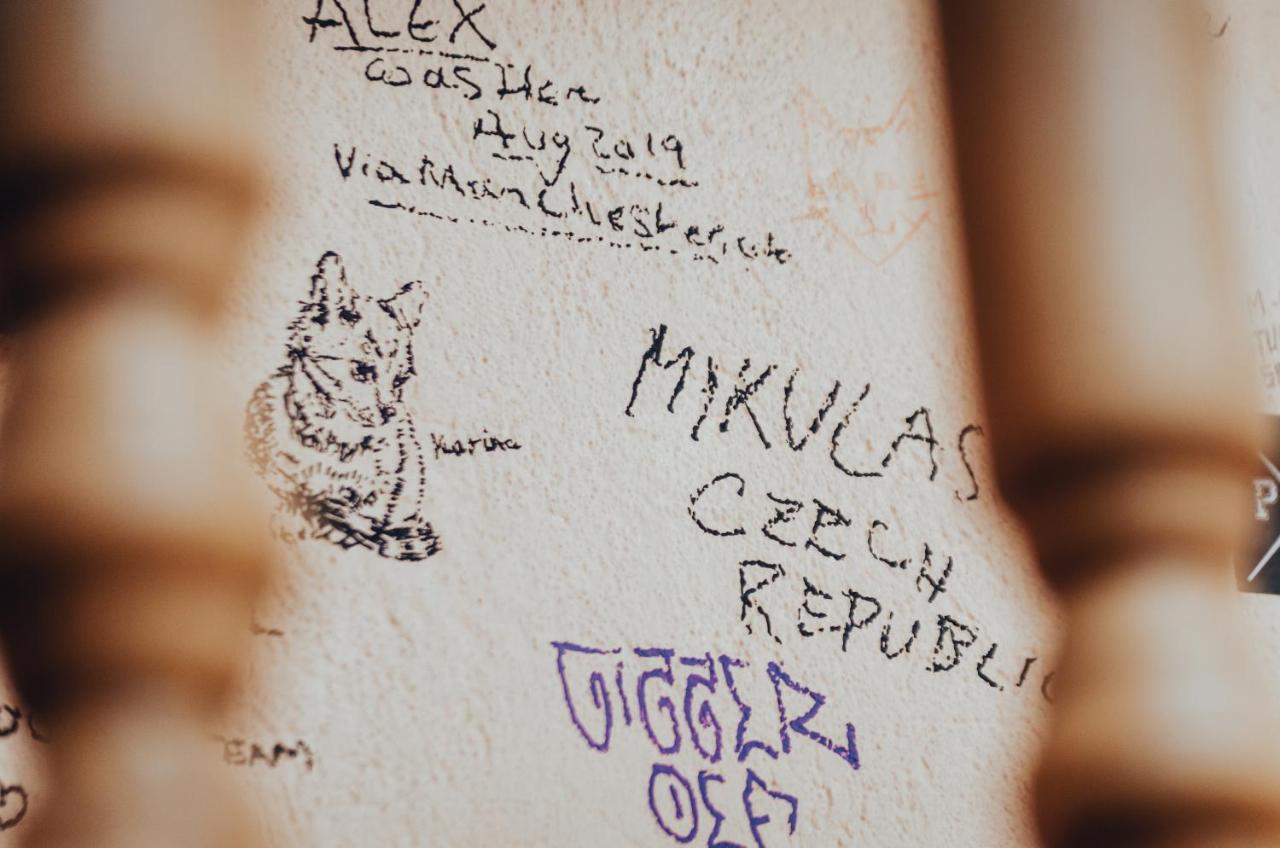 ALEX
was Here
Aug 2019
Via Manchester, uk
Karina
MIKULAS
CZECH
REPUBLIC
P